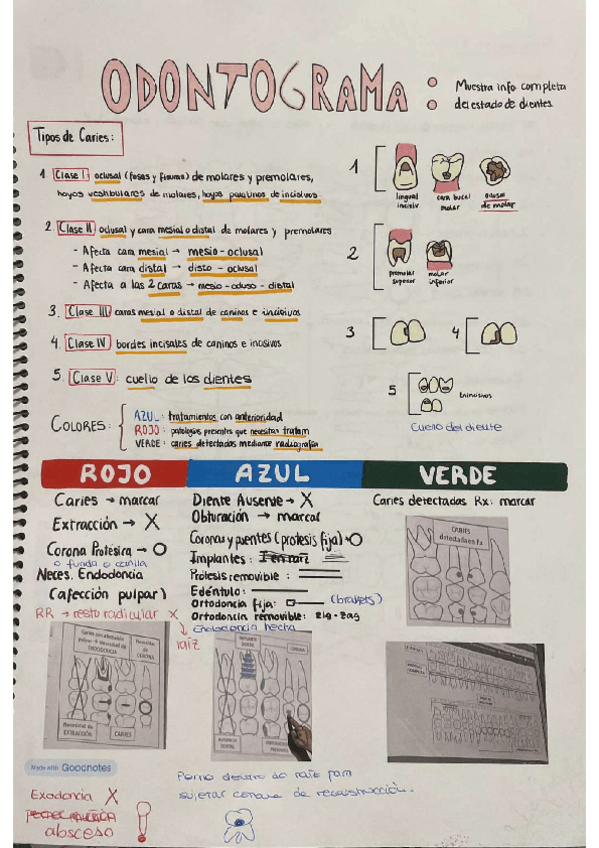 ODONTOGRAMA :
Muestra info completa
del estado de dientes.
Tipos de Caries:
1 Clase I oclusal (fosas y fisuras) de molares y premolares,
hoyos vestibulares de molares, hoyos palatinos de incisivos
2. Clase II oclusal y cara mesial o distal de molares y premolares
- Afecta cara mesial → mesio-oclusal
- Afecta cara distal → disto-oclusal
- Afecta a las 2 caras → mesio-ocluso-distal
3. Clase III caras mesial o distal de caninos e incisivos
4. Clase IV bordes incisales de caninos e incisivos
5. Clase V: cuello de los dientes
1
lingual
incisiv
cara bucal
molar
oclusal
de molar
2
premolar
superior
molar
inferior
3
4
5
incisivos
Cuello del diente
COLORES:
AZUL: tratamientos con anterioridad
ROJO: patologías presentes que necesitan tratam
VERDE: caries detectadas mediante radiografía
ROJO
Caries → marcar
Extracción → X
Corona Protésica → O
o funda o corilla
Neces. Endodoncia
(afección pulpar)
RR → resto radicular X
raíz
AZUL
Diente Ausente → X
Obturación → marcar
Coronas y puentes (protesis fija) → O
Implantes:
Prótesis removible:
Edéntulo:
Ortodoncia fija: (brakets)
Ortodoncia removible: zig-zag
Endodoncia hecha
VERDE
Caries detectadas Rx: marcar
CARIES
detectada en Rx
Necesidad
de
CORONA
ENDODONCIA
Necesidad de
EXTRACCIÓN
CARIES
IMPLANTE
DENTAL
CORONA
AUSENCIA
DENTAL
Made with Goodnotes
Exodoncia X
absceso
Perno dentro de raíz para
sujetar corona de reconstrucción.